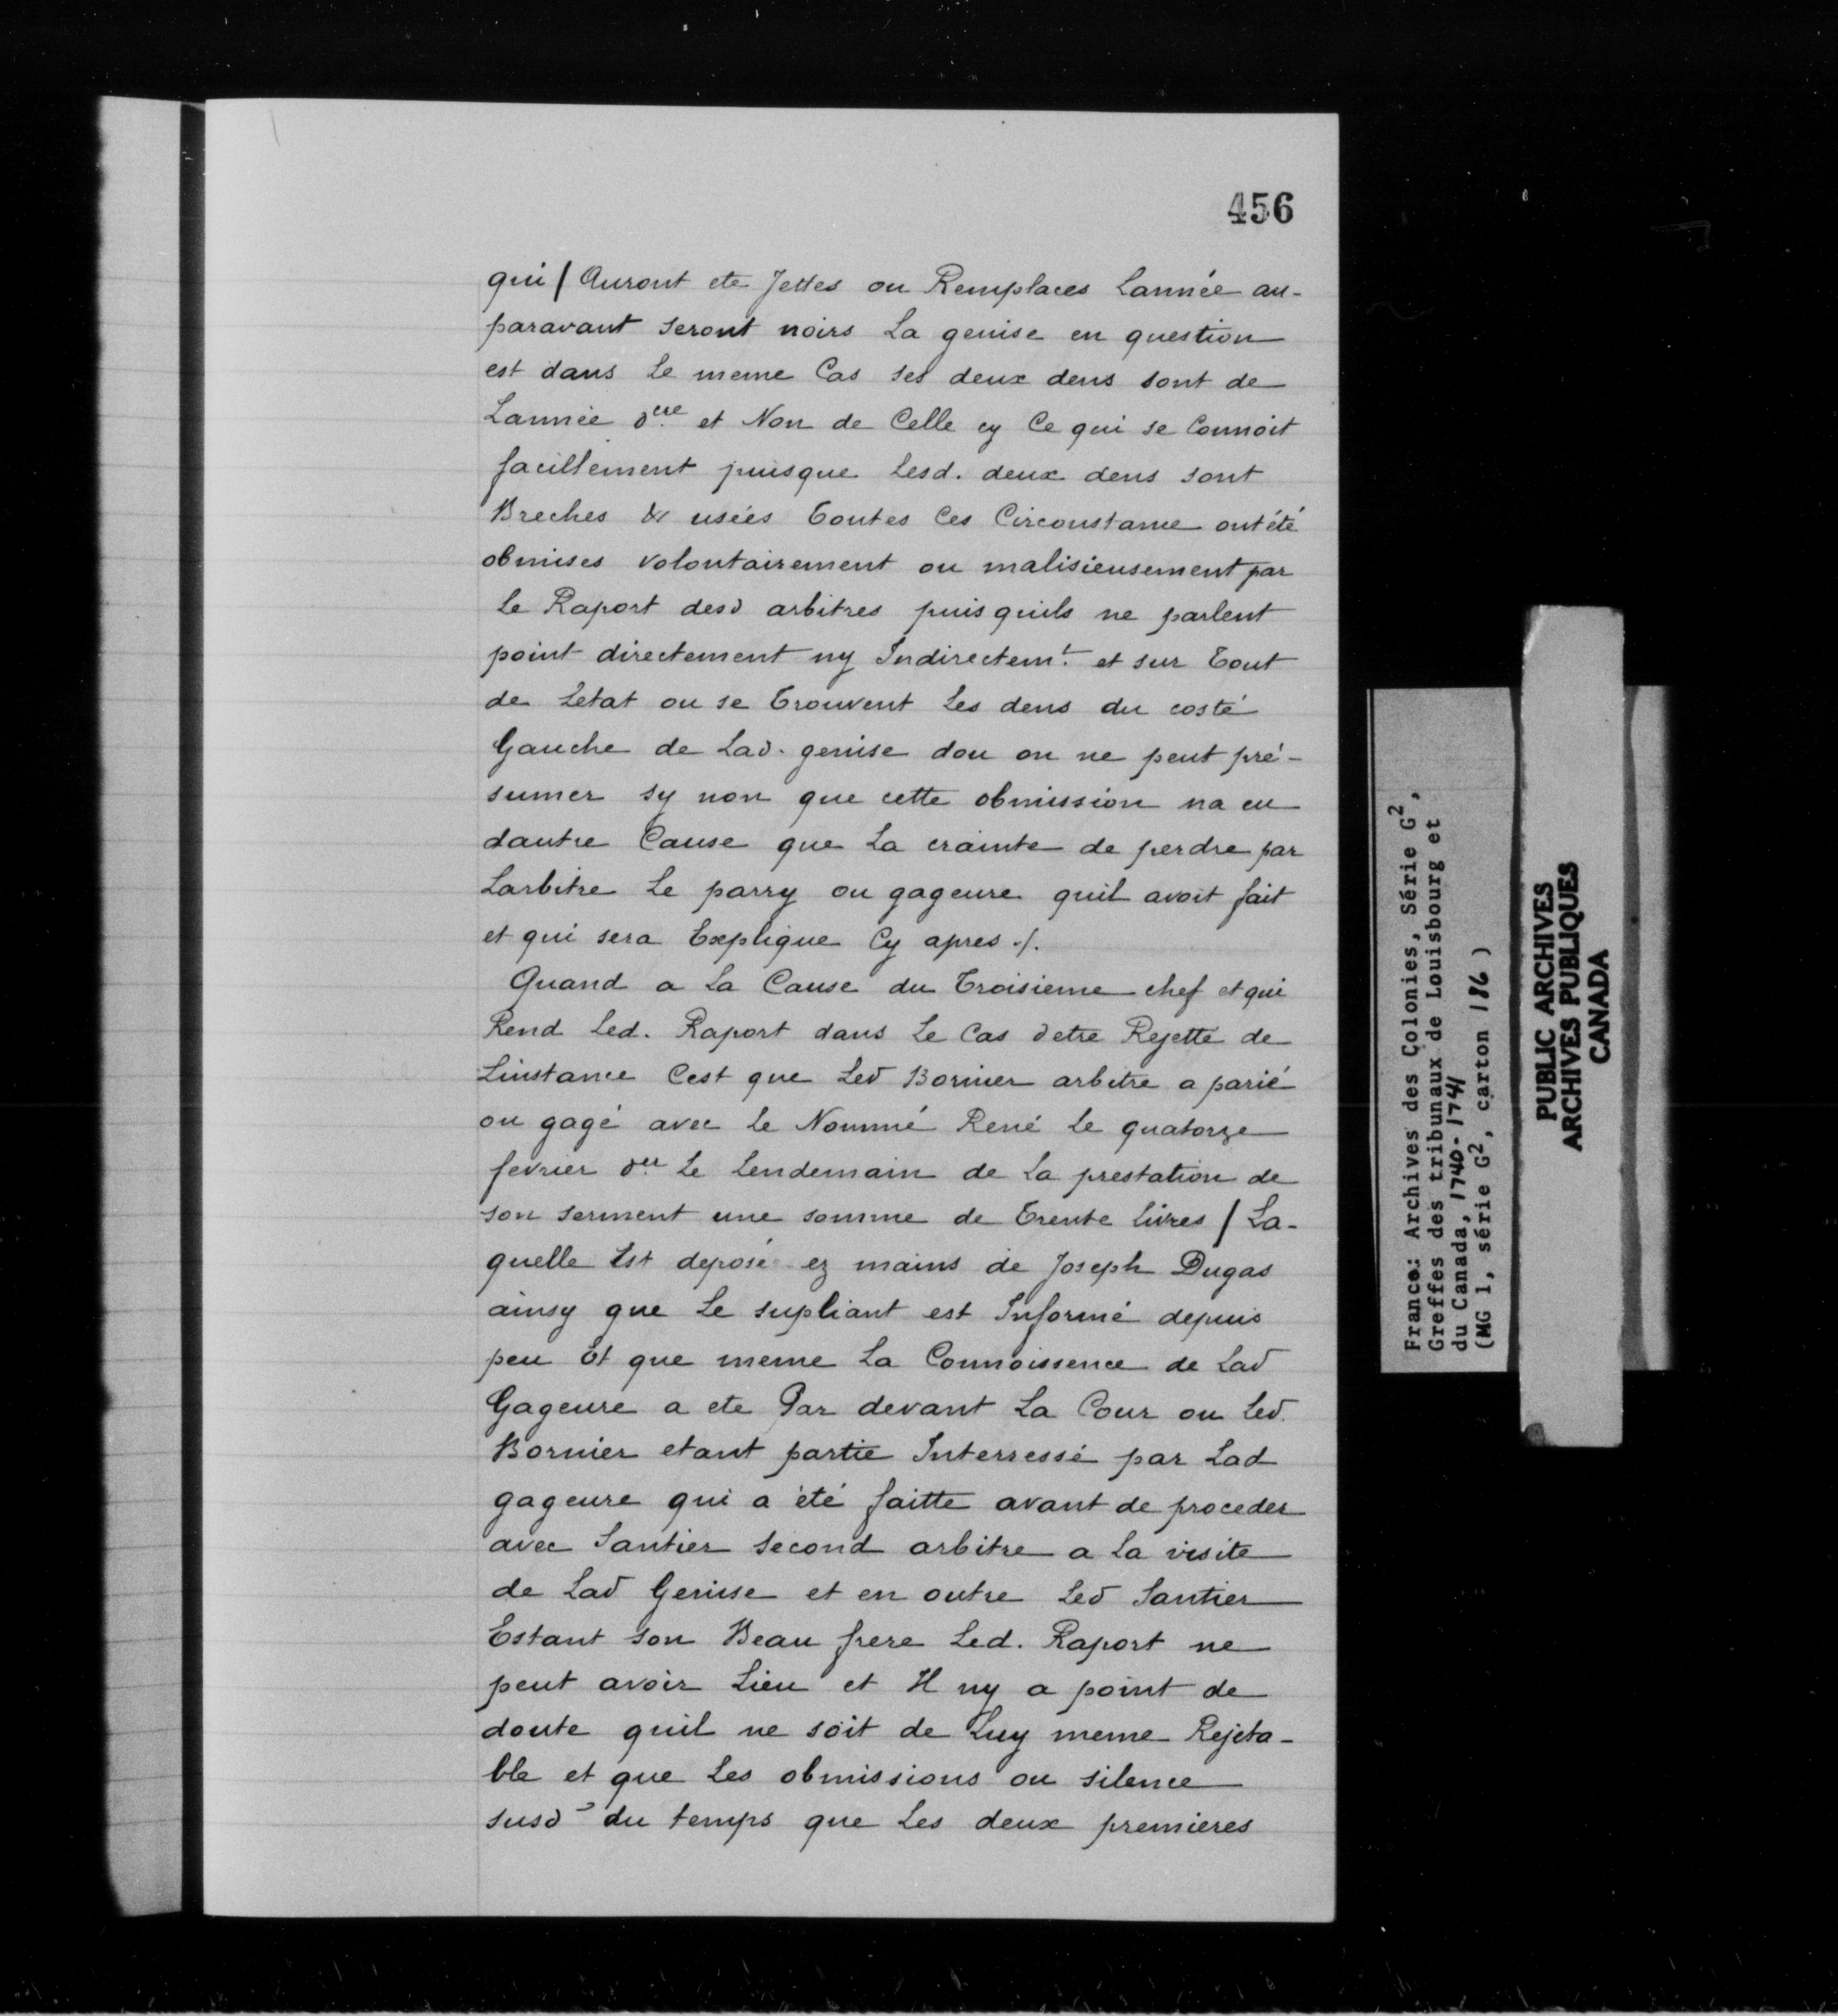 456
qui / Auront ete Jettes ou Remplaces Lannée au-
paravant seront noirs La genise en question
est dans Le meme Cas ses deux dens sont de
Lannée d.ere et Non de Celle cy Ce qui se Connoit
facillement puisque Lesd. deux dens sont
Breches & usées Toutes Ces Circonstance ont été
obmises volontairement ou malisieusement par
Le Raport desd arbitres puis quils ne parlent
point directement ny Indirectem.t et sur Tout
de Letat ou se Trouvent Les dens du costé
Gauche de Lad. genise dou on ne peut pré-
sumer sy non que cette obmission na eu
dautre Cause que La crainte de perdre par
Larbitre Le parry ou gageure quil avoit fait
et qui sera Explique Cy apres ./.
Quand a La Cause du Troisieme chef et qui
Rend Led. Raport dans Le Cas detre Rejetté de
Linstance Cest que Led Bornier arbitre a parié
ou gagé avec Le Nommé René Le quatorze
fevrier d.er Le Lendemain de La prestation de
son serment une somme de Trente livres / La-
quelle Est deposé ez mains de Joseph Dugas
ainsy que Le supliant est Informé depuis
peu Et que meme La Connoissence de Lad
Gageure a ete Par devant La Cour ou Led.
Bornier etant partie Interressé par Lad
gageure qui a été faitte avant de proceder
avec Santier second arbitre a La visite
de Lad Genise et en outre Led Santier
Estant son Beau frere Led. Raport ne
peut avoir Lieu et Il ny a point de
doute quil ne soit de Luy meme Rejeta-
ble et que Les obmissions ou silence
susd s du temps que Les deux premieres
France: Archives des Colonies, Série G2,
Greffes des tribunaux de Louisbourg et
du Canada, 1740-1741
(MG 1, série G2, carton 186 )
PUBLIC ARCHIVES
ARCHIVES PUBLIQUES
CANADA